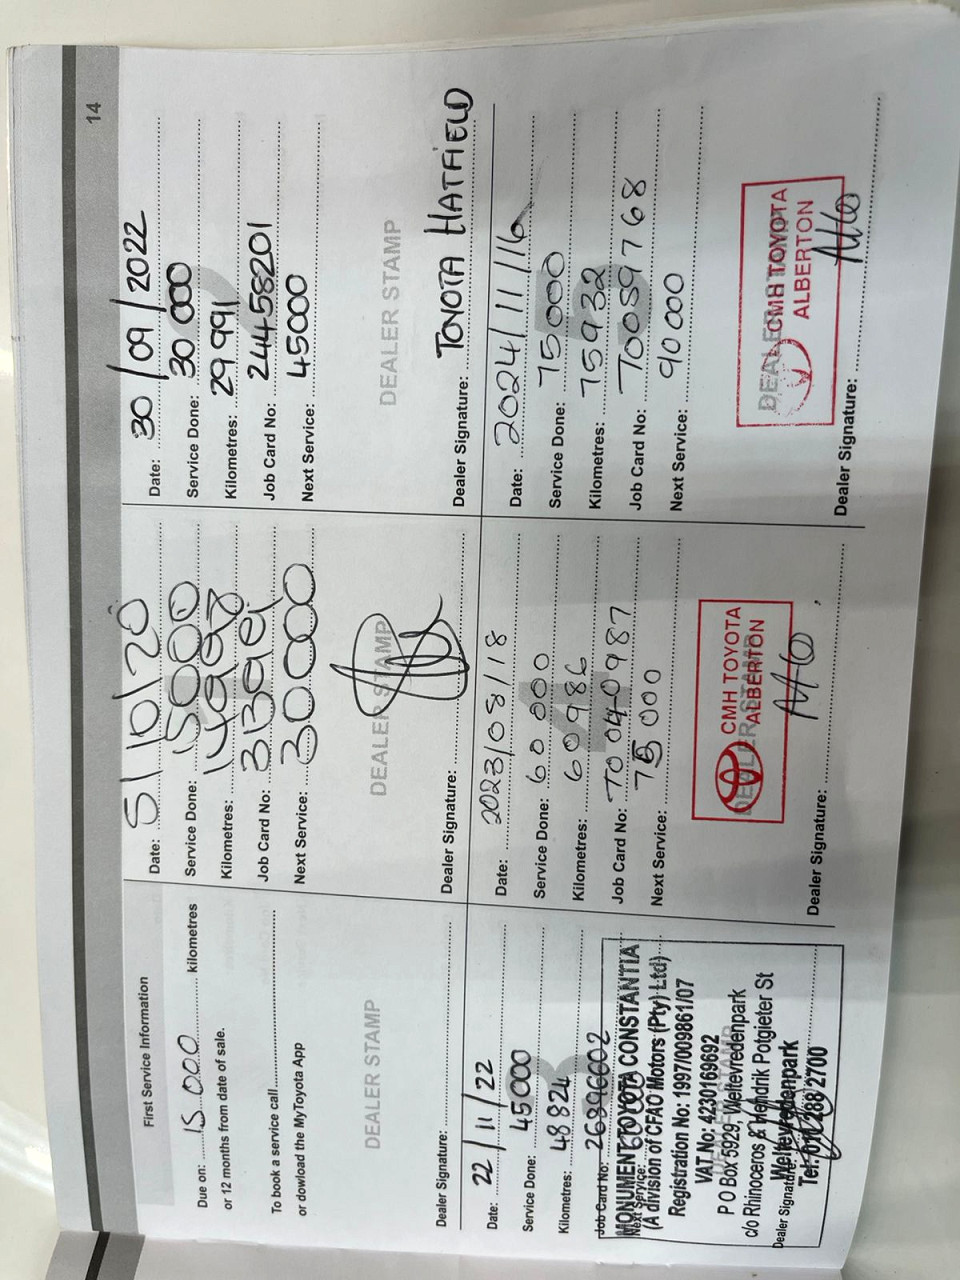 14
First Service Information
Due on: 15 000 kilometres
or 12 months from date of sale.
To book a service call
or dowload the MyToyota App
DEALER STAMP
Dealer Signature:
Date: 5/10/20
Service Done: 15000
Kilometres:
Job Card No:
Next Service: 30000
DEALER STAMP
Dealer Signature:
Date: 30/09/2022
Service Done: 30 000
Kilometres: 29 991
Job Card No: 24458201
Next Service: 45000
DEALER STAMP
Dealer Signature: TOYOTA HATFIELD
Date: 22/11/22
Service Done: 45000
Kilometres: 48824
Job Card No: 26396602
Next Service: 60000
MONUMENT TOYOTA CONSTANTIA
(A division of CFAO Motors (Pty) Ltd)
Registration No: 1997/009861/07
VAT No: 4230169692
P O Box 5929, Weltevredenpark
c/o Rhinoceros & Hendrik Potgieter St
Weltevredenpark
Dealer Signature:
Tel: 2700
Date: 2023/08/18
Service Done: 60 000
Kilometres: 60986
Job Card No: 70040987
Next Service: 75 000
DEALER STAMP
CMH TOYOTA
ALBERTON
Dealer Signature:
Date: 2024/11/16
Service Done: 75000
Kilometres: 75932
Job Card No: 70059768
Next Service: 90 000
DEALER STAMP
CMH TOYOTA
ALBERTON
Dealer Signature: